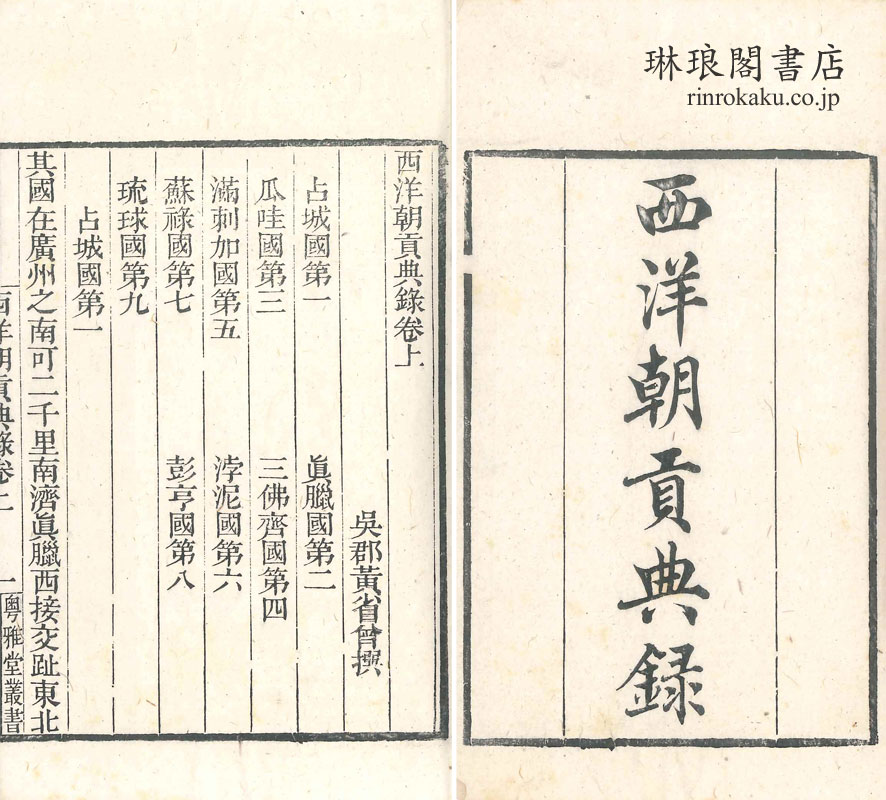 琳琅閣書店
rinrokaku.co.jp
西洋朝貢典録
西洋朝貢典錄卷上
吳郡黃省曾撰
占城國第一
眞臘國第二
瓜哇國第三
三佛齊國第四
滿剌加國第五
浡泥國第六
蘇祿國第七
彭亨國第八
琉球國第九
占城國第一
其國在廣州之南可二千里南濟眞臘西接交趾東北
西洋朝貢典錄卷上
一
粵雅堂叢書